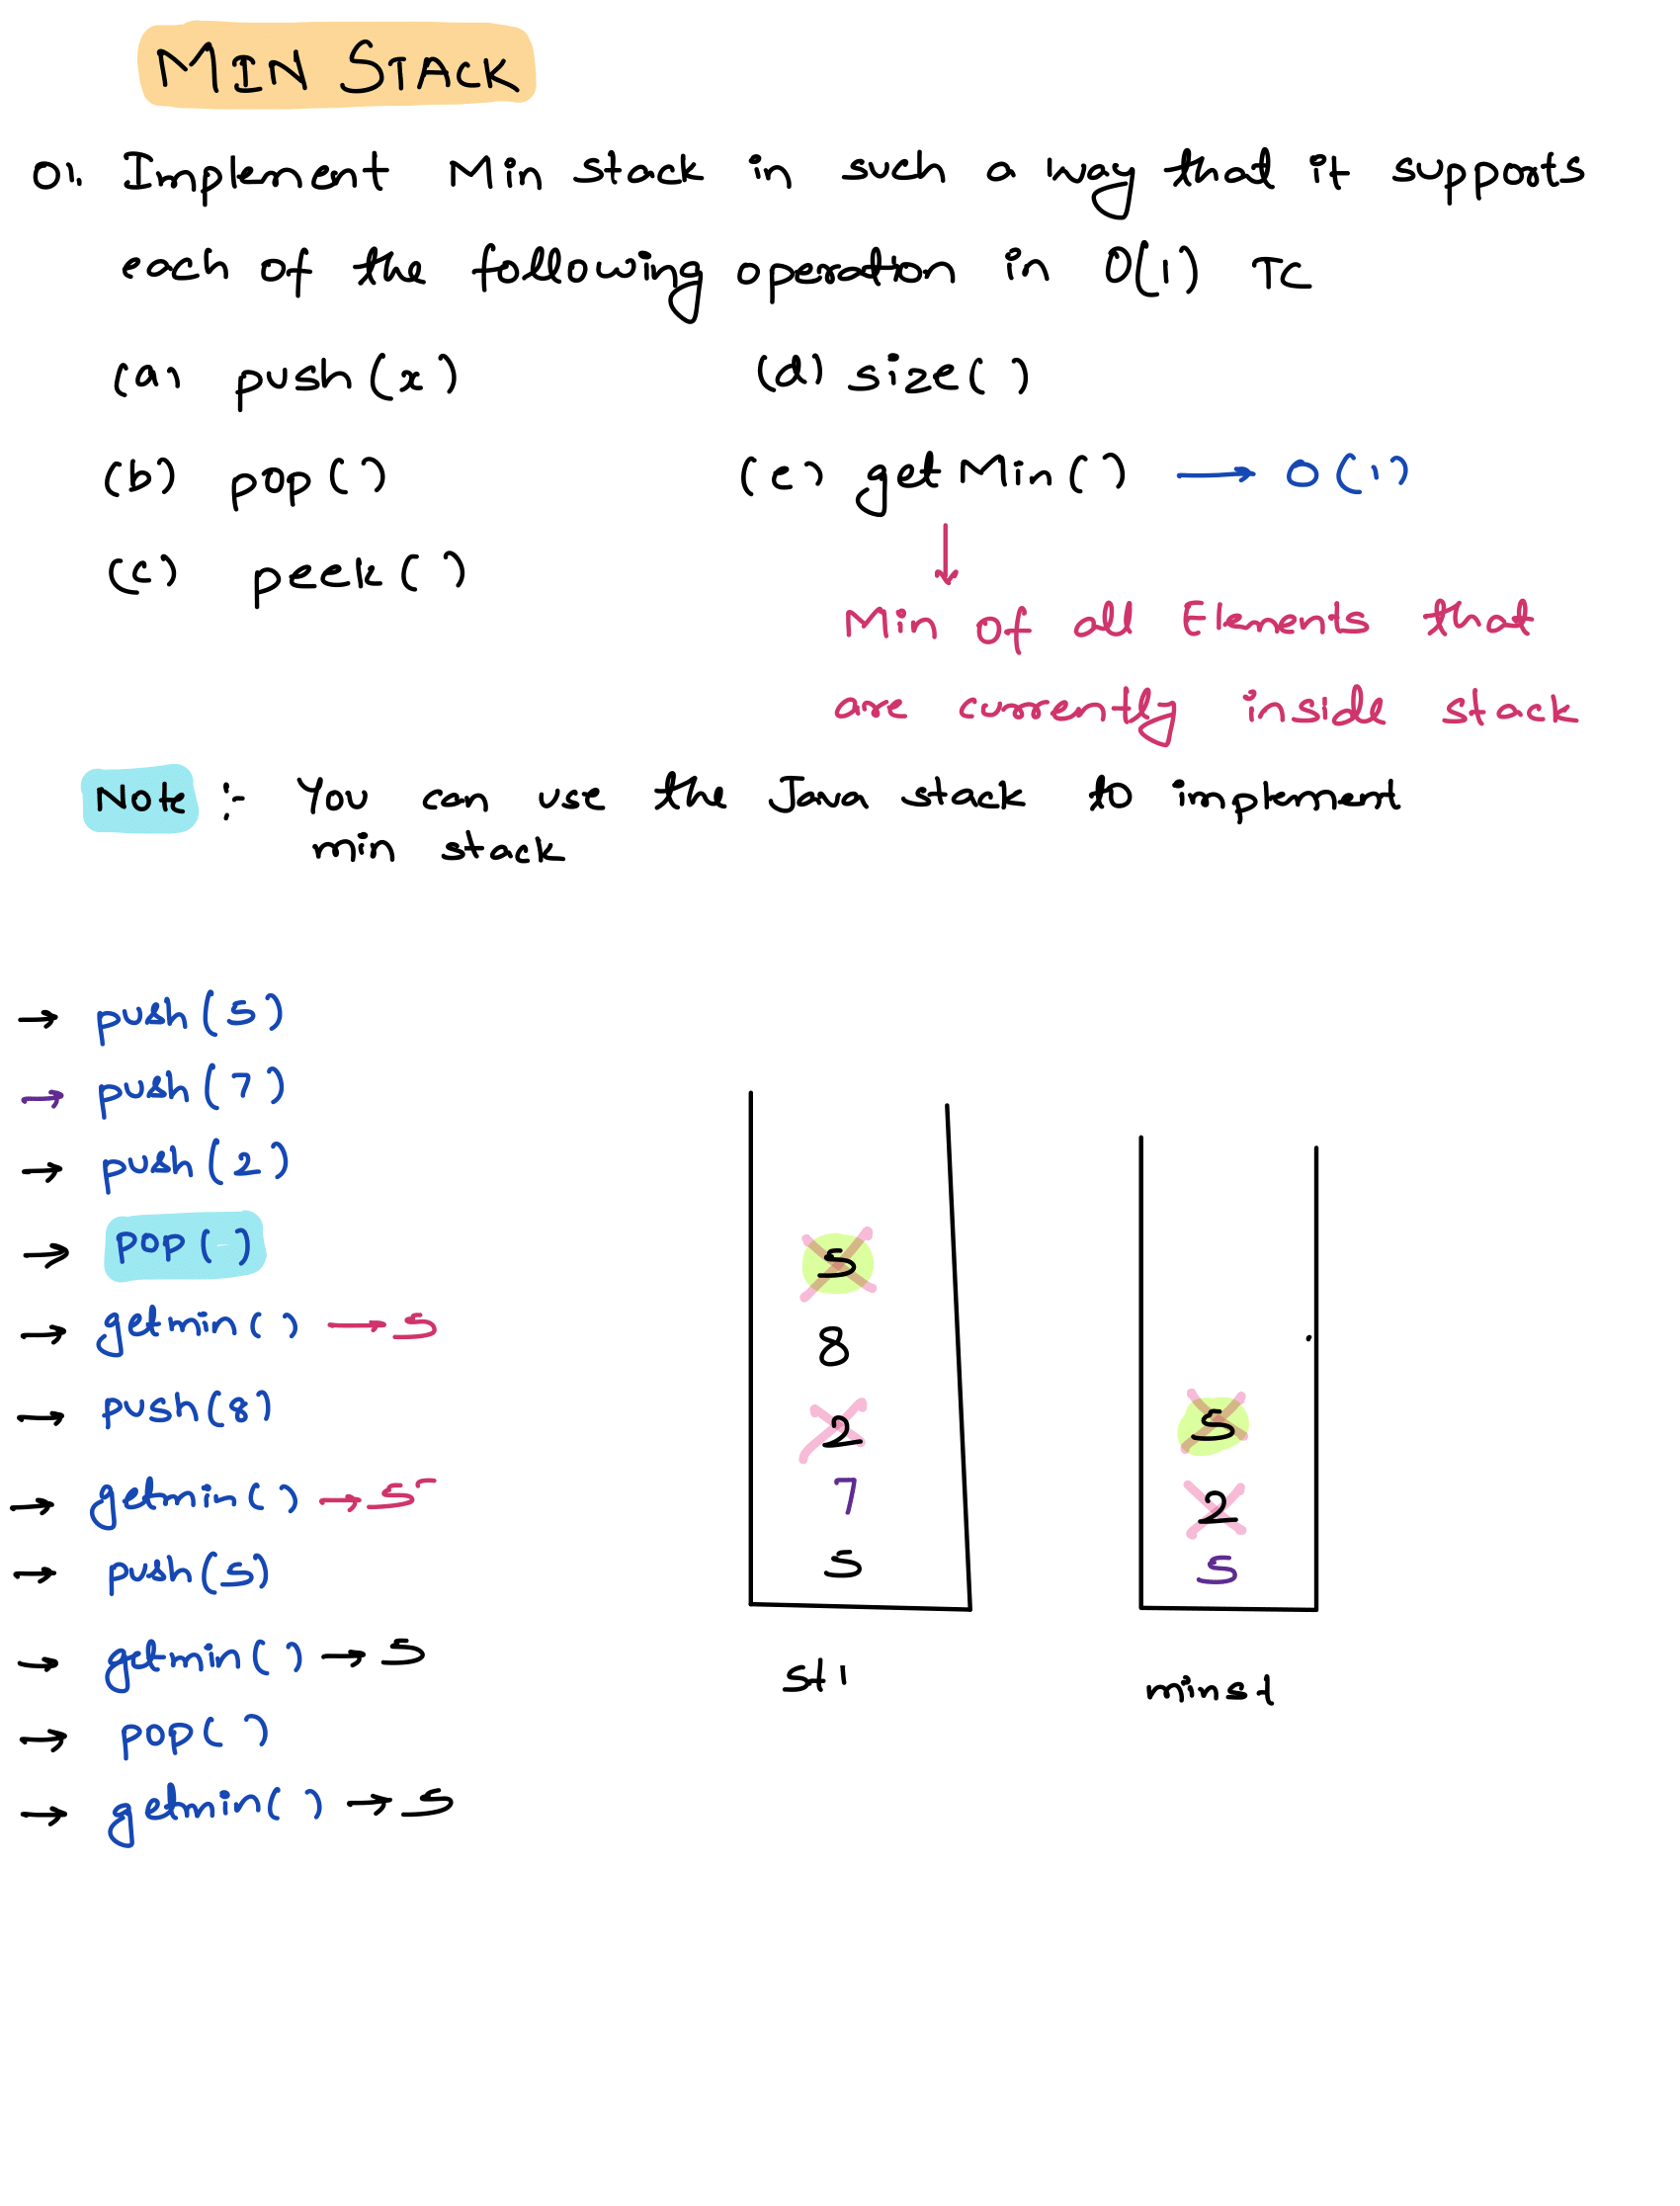 MIN STACK
01. Implement Min stack in such a way that it supports
each of the following operation in O(1) TC
(a) push(x) (d) size()
(b) pop() (e) getMin() → O(1)
(c) peek() ↓
Min of all Elements that
are currently inside stack
Note :- You can use the Java stack to implement
min stack
→ push(5)
→ push(7)
→ push(2)
→ pop()
→ getmin() → 5
→ push(8)
→ getmin() → 5
→ push(5)
→ getmin() → 5
→ pop()
→ getmin() → 5
5
8
2
7
5
st1
5
2
5
minst